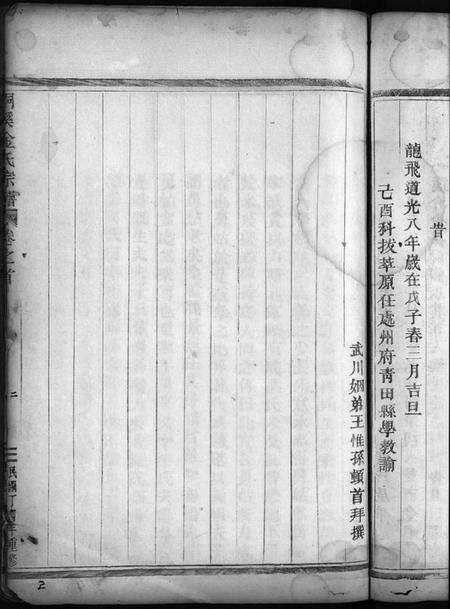 旹
龍飛道光八年歲在戊子春三月吉旦
己酉科拔萃原任處州府靑田縣學敎諭
武川姻弟王惟孫頓首拜撰
桐溪金氏宗譜
卷之首
二
2